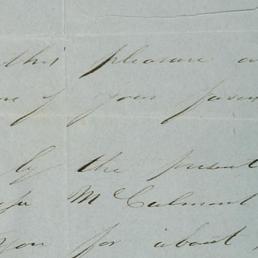 this pleasure
of your favor
by the present
McCalmont
you for about